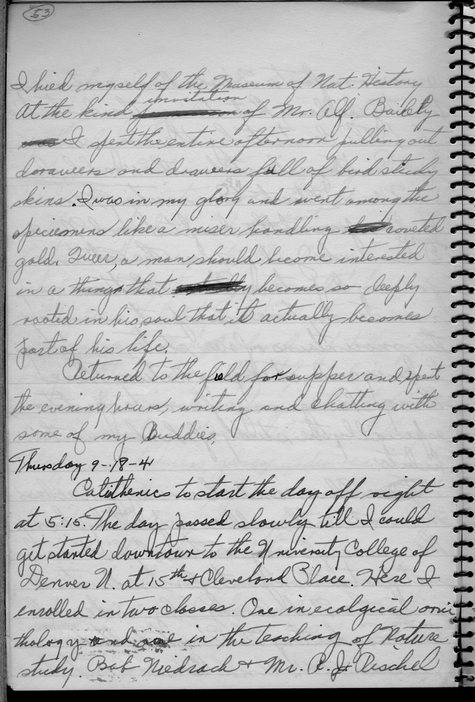 53
I hied myself of the Museum of Nat. History
At the kind invitation of Mr. Alf. Bailely
I spent the entire afternoon pulling out
dorawers and drawers full of bird study
skins. I was in my glory and went among the
specimins like a miser handling coveted
gold. Queer, a man should become interested
in a thing that becomes so deeply
rooted in his soul that it actually becomes
part of his life.
Returned to the field for supper and spent
the evening hours, writing and chatting with
some of my Buddies.
Thursday 9-18-41
Calithenics to start the day off right
at 5:15. The day passed slowly till I could
get started downtown to the University College of
Denver U. at 15th & Cleveland Place. Here I
enrolled in two classes. One in ecological orni
thology and one in the teaching of Nature
study. Bob Niedrach & Mr. R. J. Rischel